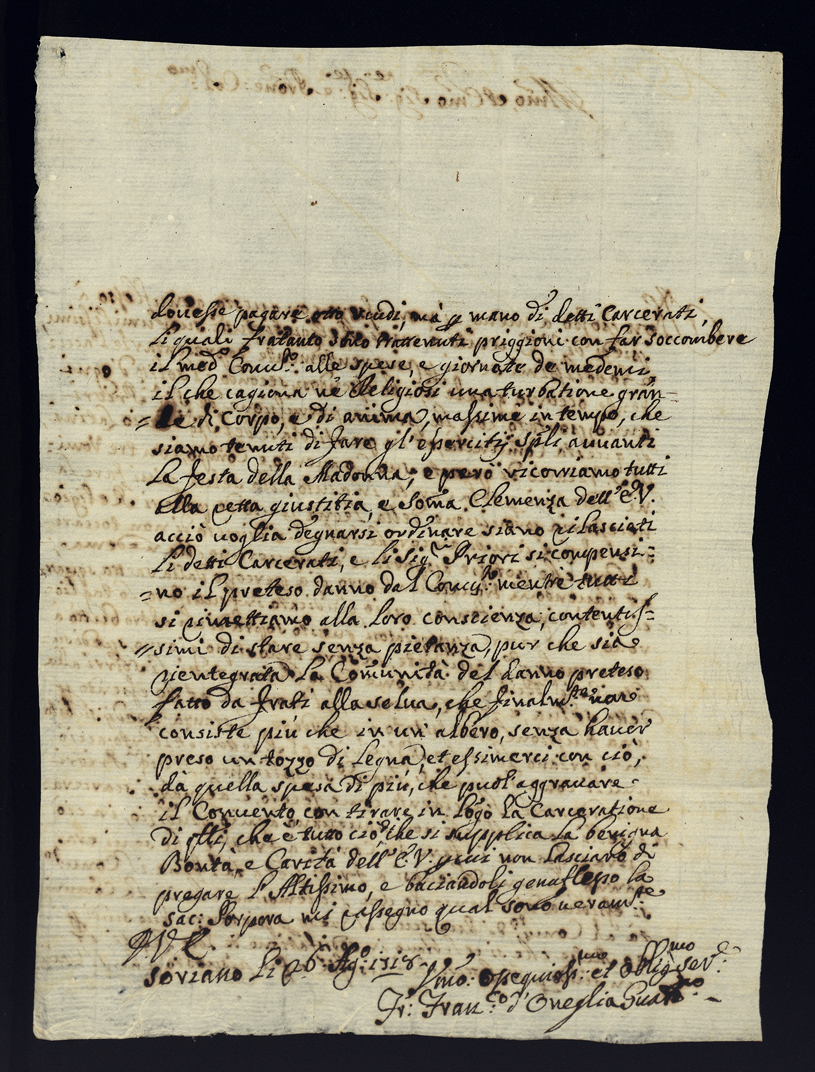 douesse pagare otto scudi, mà p mano di detti Carcerati,
li quali fratanto sono trattenuti priggioni con far soccombere
il med.º Conu.to alle spese, e giornate de medemi
il che cagiona nè Religiosi una turbatione gran=
=de di Corpo, e di anima, massime in tempo, che
siamo tenuti di fare gl'esercitij spli auuanti
La festa della Madonna; e però ricorriamo tutti
alla retta giustitia, e soma Clemenza dell'E.V.
acciò uoglia degnarsi ordinare siano rilasciati
li detti Carcerati, e li Sig.ri Priori si compensi=
=no il preteso danno dal Conu.to mentre tutti
si rimettiamo alla loro conscienza, contentis=
=simi di stare senza pietanza, pur che sia
rientegrata La Comunità del danno preteso
fatto da frati alla selua, che finalm.te non
consiste più che in un albero, senza hauer
preso un tozzo di Legna, et essimerci con ciò,
da quella spesa di più, che puol'aggrauare
il Conuento, con tirare in Logo La Carceratione
di qti, che è tutto ciò che si supplica La benigna
Bontà, e Carità dell'E.V. p cui non Lasciarò di
pregare L'Altissimo, e baciandoli genuflesso la
sac: Porpora mi rassegno qual sono ueram.te
D V E
Soriano Li 26 Ag.º 1718
Vmo: Osequiosis.mo et Oblig.mo Ser.
Fr: Fran.co d'Oneglia Guard.no